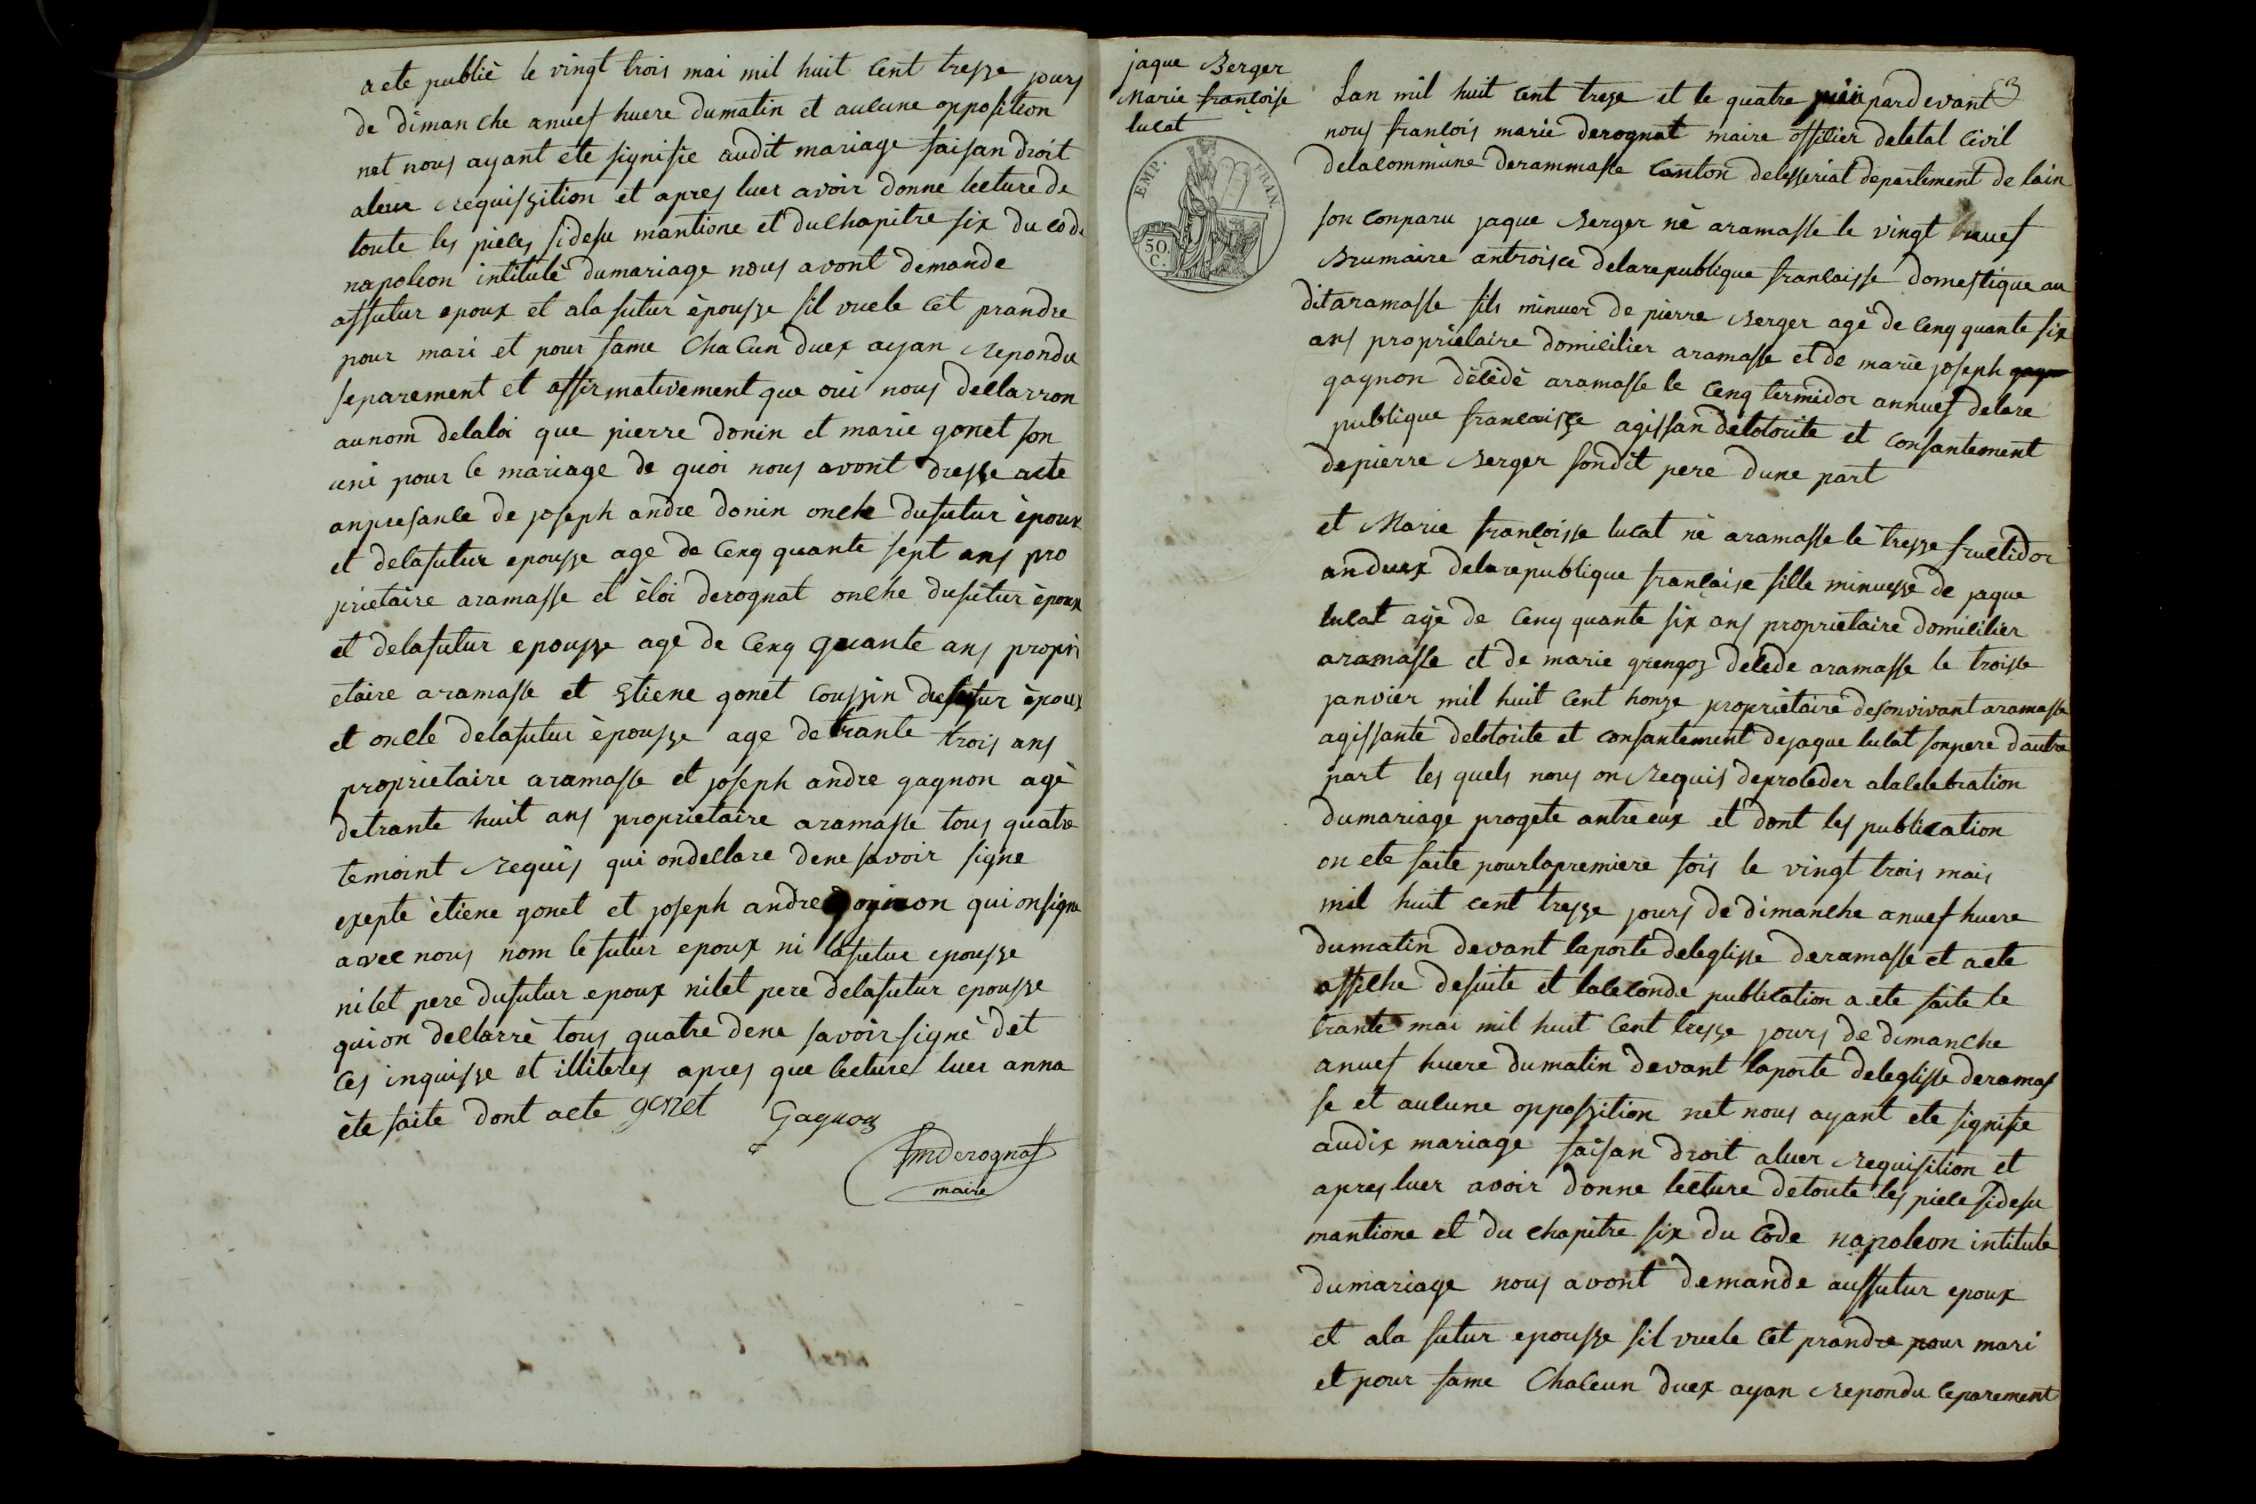 a ete publiè le vingt trois mai mil huit Cent tresse jours
de dimanche anuef huere dumatin et aucune opposition
net nous ayant ete signifie audit mariage faisan droit
aleur requissition et apres luer avoir donne lecture de
toute les pieces sidesu mantione et duChapitre six du code
napoleon intitulè dumariage nous avont demande
affutur epoux et ala futur èpousse sil vuele Cet prandre
pour mari et pour fame ChaCun duex ayan repondu
separement et affirmativement que oui nous declarron
aunom delaloi que pierre donin et marie gonet son
uni pour le mariage de quoi nous avont dresse acte
anpresance de joseph andre donin oncle dufutur èpoux
et delafutur epousse age de Cenq quante sept ans pro
prietaire aramasse et èloi derognat oncle dufutur èpoux
et delafutur epousse age de Cenq quante ans propri
etaire aramasse et Etiene gonet Coussin dufutur èpoux
et oncle delafutur èpousse age detrante trois ans
proprietaire aramasse et joseph andre gagnon agè
detrante huit ans proprietaire aramasse tous quatre
temoint requis qui ondeclare dene savoir signe
exepte ètiene gonet et joseph andre gagnon qui onsigne
avec nous nom le futur epoux ni lafutur epousse
nilet pere dufutur epoux nilet pere delafutur epousse
quion declarrè tous quatre dene savoir signè det
Ces inquisse et illiteres apres que lecture luer anna
ète faite dont acte gonet Gagnon
fmderognat
maire
jaque Berger
Marie françoise
lucat
EMP. FRAN.
50 C.
Lan mil huit Cent trese et le quatre juin pardevant
nous francois marie derognat maire officier deletat Civil
delacommune derammasse Canton deleysseriat departement de lain
son Conparu jaque Berger nè aramasse le vingt nuef
Brumaire antroisce delarepublique francaisse domestique au
ditaramasse fils minuer de pierre Berger agè de Cenq quante six
ans proprietaire domicilier aramasse et de marie joseph
gagnon dècèdè aramasse le Cenq termidor annuef delare
publique francaisse agissan delotorite et Consantement
depierre Berger sondit pere dune part
et Marie françoisse lucat nè aramasse lè tresse fructidor
anduex delarepublique francaise fille minuesse de jaque
lucat agè de Cenq quante six ans proprietaire domicilier
aramasse et de marie grengoz decede aramasse le troisse
janvier mil huit Cent honze propriètaire desonvivant aramasse
agissante delotorite et consantement dejaque lucat sonpere dautre
part les quels nous on Requis deproceder alacelebration
dumariage progete antre eux et dont les publication
on ete faite pourlapremiere fois le vingt trois mais
mil huit cent tresse jours de dimanche anuef huere
dumatin devant laporte deleglisse deramasse et aete
affiche desuite et laseconde publication a ete faite le
trante mai mil huit Cent tresse jours de dimanche
anuef huere dumatin devant laporte deleglisse deramas
se et aucune oppossition net nous ayant ete signifie
audix mariage faisan droit aluer requisition et
apres luer avoir donne lecture detoute les piece sidesu
mantione et du chapitre six du Code napoleon intitule
dumariage nous avont demande auffutur epoux
et ala futur epousse sil vuele Cet prandre pour mari
et pour fame ChaCeun duex ayan repondu Ceparement